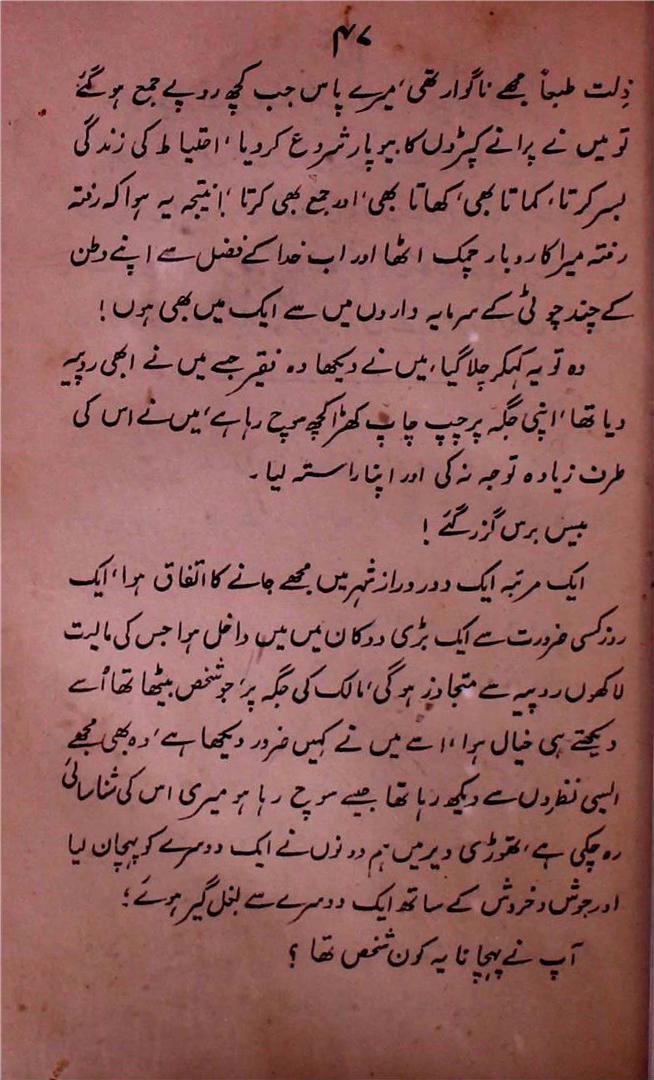 ۴۷
ذلت طبعاً مجھے ناگوار تھی، میرے پاس جب کچھ روپے جمع ہو گئے
تو میں نے پرانے کپڑوں کا بیوپار شروع کر دیا، احتیاط کی زندگی
بسر کرتا، کماتا بھی، کھاتا بھی، اور جمع بھی کرتا، نتیجہ یہ ہوا کہ رفتہ
رفتہ میرا کاروبار چمک اٹھا اور اب خدا کے فضل سے اپنے وطن
کے چند چوٹی کے سرمایہ داروں میں سے ایک میں بھی ہوں!
وہ تو یہ کہکر چلا گیا، میں نے دیکھا وہ فقیر جسے میں نے ابھی روپیہ
دیا تھا، اپنی جگہ پر چپ چاپ کھڑا کچھ سوچ رہا ہے، میں نے اس کی
طرف زیادہ توجہ نہ کی اور اپنا راستہ لیا۔
بیس برس گزر گئے!
ایک مرتبہ ایک دور دراز شہر میں مجھے جانے کا اتفاق ہوا، ایک
روز کسی ضرورت سے ایک بڑی دوکان میں میں داخل ہوا جس کی مالیت
لاکھوں روپیہ سے متجاوز ہوگی، مالک کی جگہ پر، جو شخص بیٹھا تھا اُسے
دیکھتے ہی خیال ہوا، اسے میں نے کہیں ضرور دیکھا ہے، وہ بھی مجھے
ایسی نظروں سے دیکھ رہا تھا جیسے سوچ رہا ہو میری اس کی شناسائی
رہ چکی ہے، تھوڑی دیر میں ہم دونوں نے ایک دوسرے کو پہچان لیا
اور جوش و خروش کے ساتھ ایک دوسرے سے بغل گیر ہوئے؛
آپ نے پہچانا یہ کون شخص تھا؟